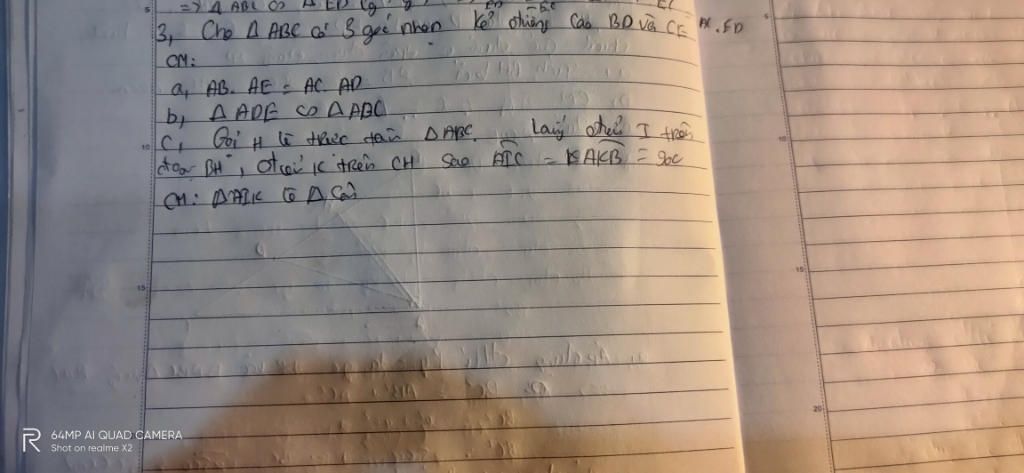 => Δ ABC ∽ Δ ED
3, Cho Δ ABC có 3 góc nhọn kẻ đường cao BD và CE AC . ED
CM:
a, AB. AE = AC. AD
b, Δ ADE ∽ Δ ABC
c, Gọi H là trực tâm Δ ABC. Lấy điểm I trên
đoạn BH, điểm K trên CH sao AIC = AKB = 90
CM: Δ AIK là Δ Cân
5
10
15
5
10
15
20
R 64MP AI QUAD CAMERA
Shot on realme X2